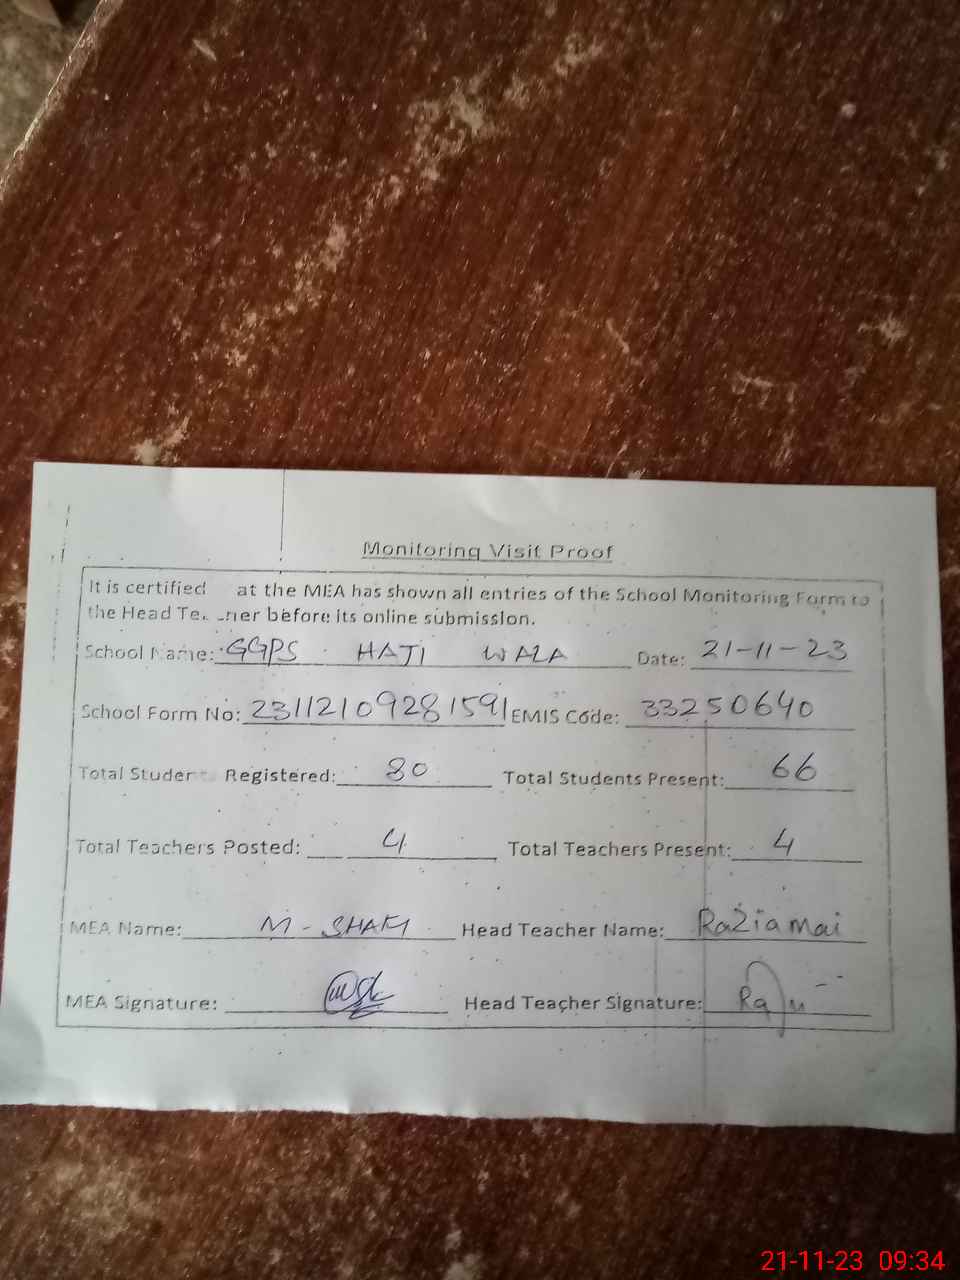 Monitoring Visit Proof
It is certified at the MEA has shown all entries of the School Monitoring Form to
the Head Te. .ner before its online submission.
School Name: GGPS HAJI WALA Date: 21-11-23
School Form No: 23112109281591 EMIS Code: 33250640
Total Student Registered: 80 Total Students Present: 66
Total Teachers Posted: 4 Total Teachers Present: 4
MEA Name: M-SHAFI Head Teacher Name: Razia Mai
MEA Signature: Head Teacher Signature:
21-11-23 09:34